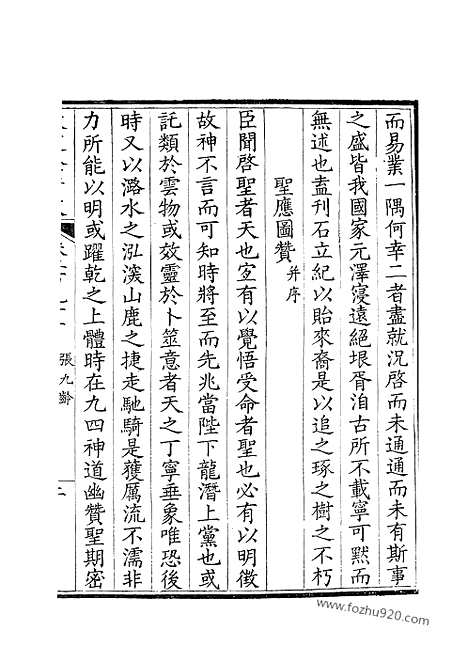 而易業一隅何幸二者盡就況啓而未通通而未有斯事
之盛皆我國家元澤寖遠絕垠胥洎古所不載寧可默而
無述也盍刊石立紀以貽來裔是以追之琢之樹之不朽
聖應圖贊并序
臣聞啓聖者天也宜有以覺悟受命者聖也必有以明徵
故神不言而可知時將至而先兆當陛下龍潛上黨也或
託類於雲物或效靈於卜筮意者天之丁寧垂象唯恐後
時又以潞水之泓濙山鹿之捷走馳騎是獲厲流不濡非
力所能以明或躍乾之上體時在九四神道幽贊聖期密
張九齡
二
www.fozhu920.com